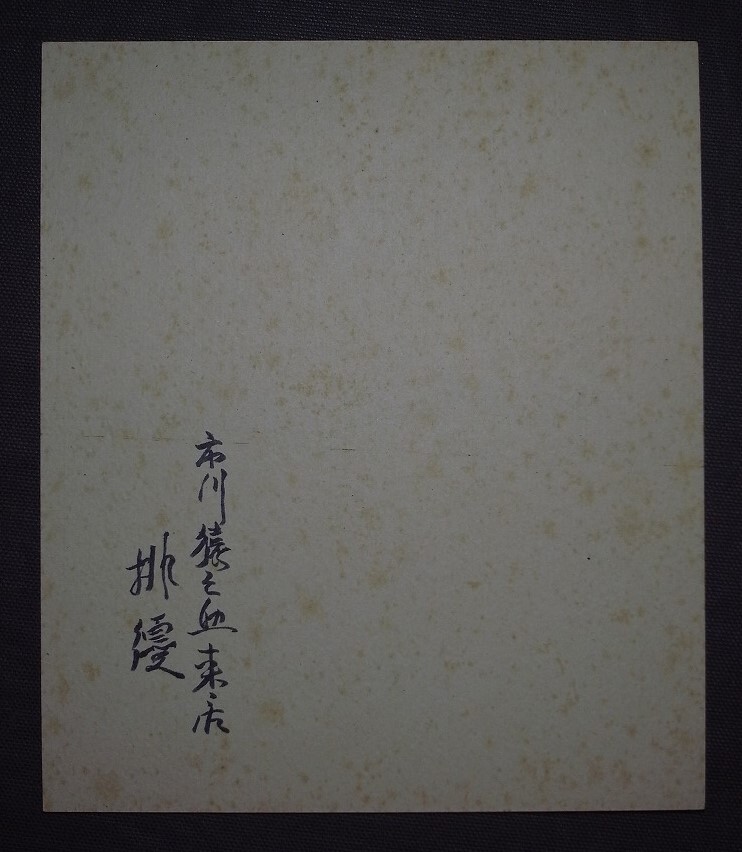 市川猿之助来店
排優